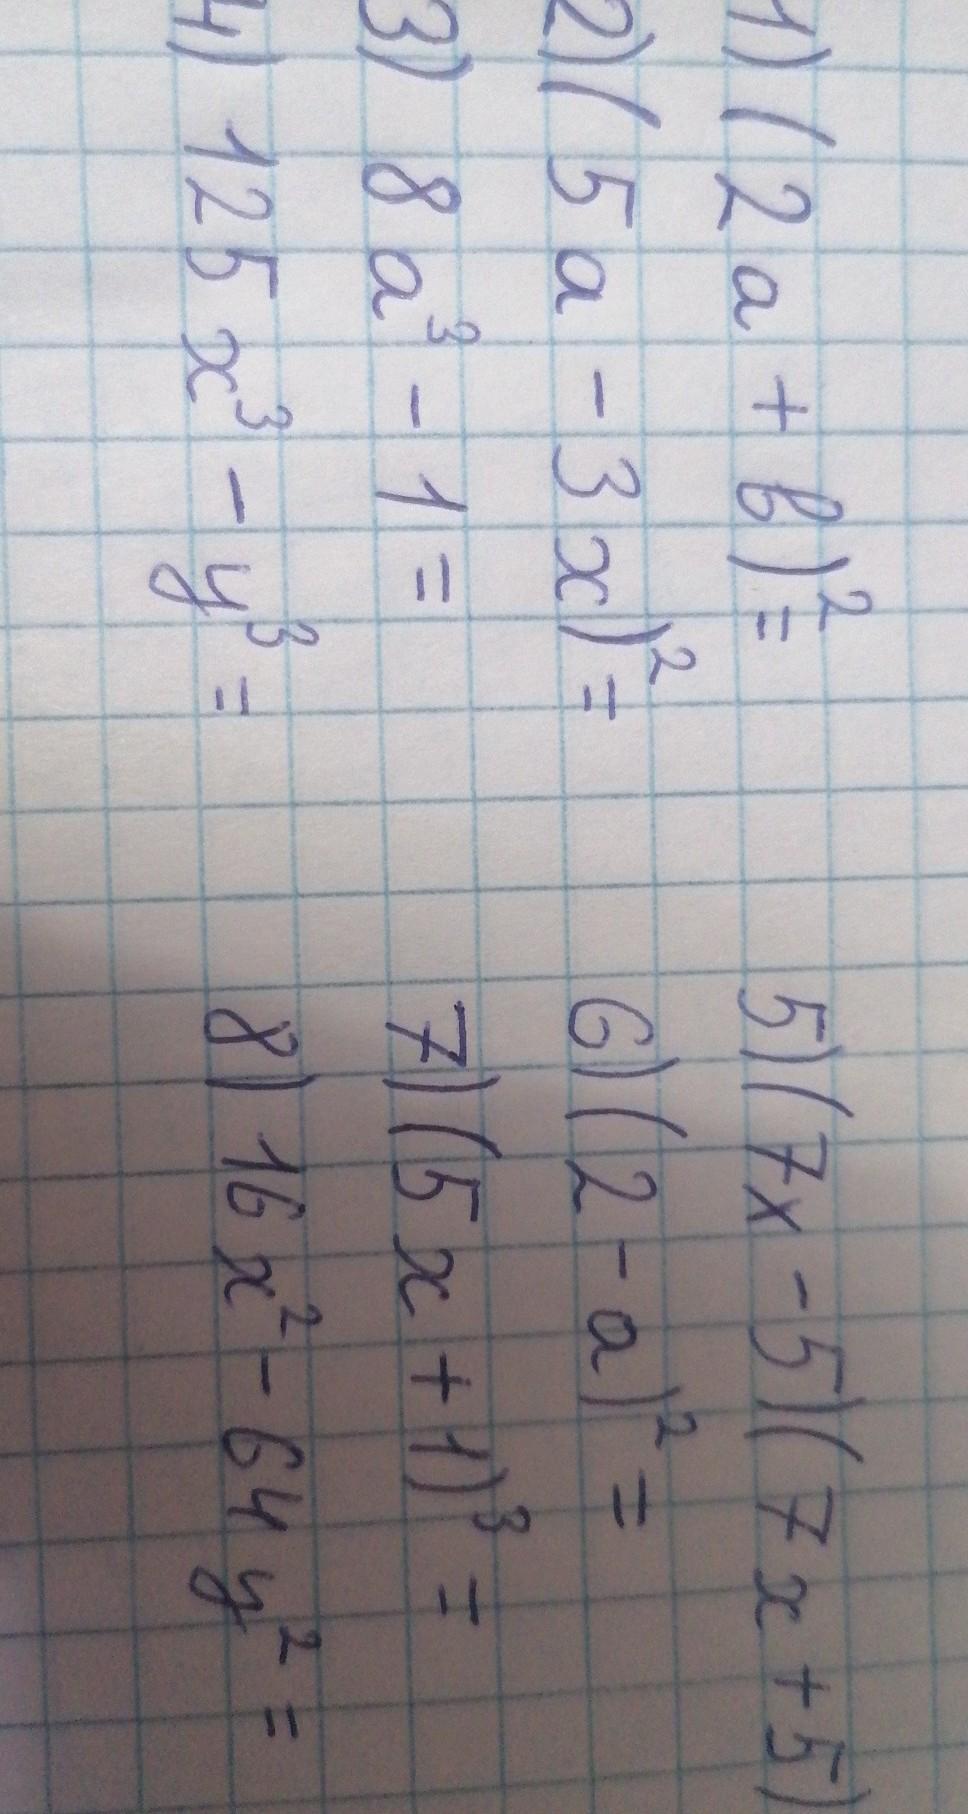 1) (2a + b)² =
2) (5a - 3x)² =
3) 8a³ - 1 =
4) 125x³ - y³ =
5) (7x - 5)(7x + 5)
6) (2 - a)² =
7) (5x + 1)³ =
8) 16x² - 64y² =